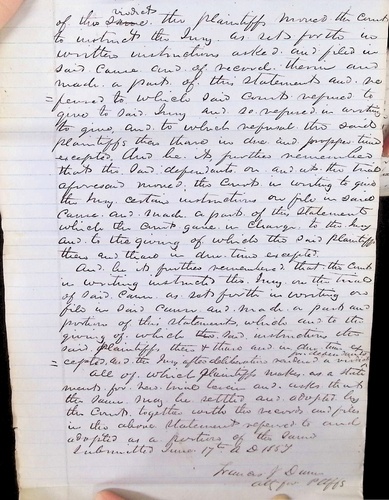 verdict
of this the plaintiffs moved the Court
to instruct the Jury as set forth in
written instruction asked and filed in
said Cause and of record therein and
made a part of this Statement and re
= ferred to which said Court refused to
give to said Jury and so refused in writing
to give and to which refusal the said
plaintiffs then there in due and proper time
excepted. And be it further remembered
that the said defendants on and at the trial
aforesaid moved the Court in writing to give
the Jury certain instructions on file in said
Cause and made a part of this Statement
which the Court gave in Charge to the Jury
and to the giving of which the said plaintiffs
then and there in due time excepted
And be it further remembered that the Court
in writing instructed the Jury on the trial
of said Cause as set forth in writing on
file in said Cause and made a part and
portion of this statement which and to the
giving of which the said instructions the
said plaintiffs then & there and in due time ex
= cepted and the Jury after deliberation rendered a verdict for defendants
All of which Plaintiffs makes as a state
ment for new trial herein and asks that
the same may be settled and adopted by
the Court together with the records and files
in the above Statement referred to and
adopted as a portion of the same
Submitted June 17th A D 1887
Francis J Dunn
att for Pltffs